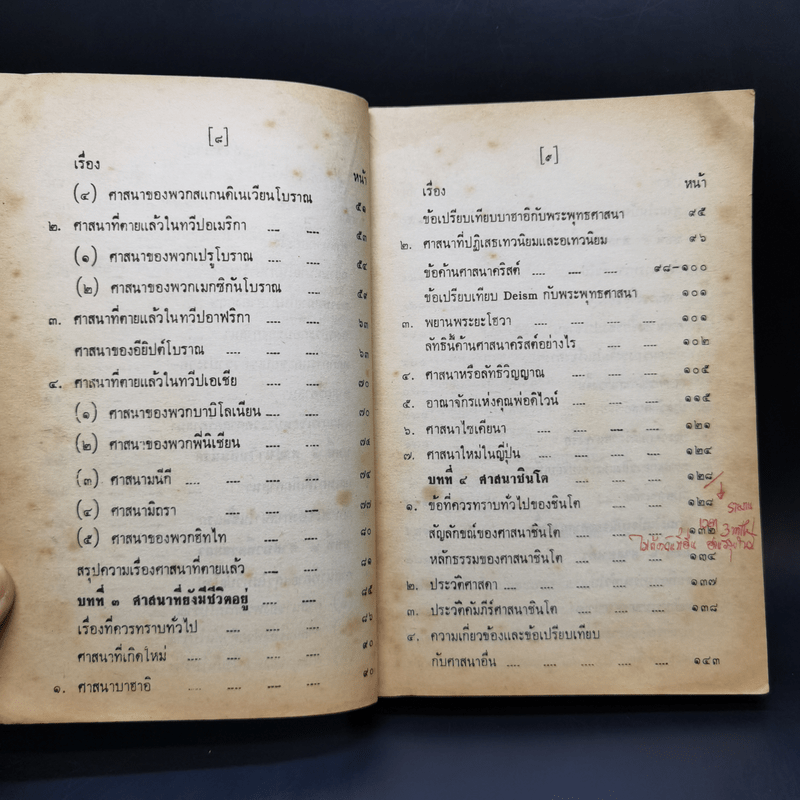 [๘]
เรื่อง หน้า
(๔) ศาสนาของพวกสแกนดิเนเวียนโบราณ ๕๑
๒. ศาสนาที่ตายแล้วในทวีปอเมริกา .... .... ๕๓
(๑) ศาสนาของพวกเปรูโบราณ .... .... ๕๔
(๒) ศาสนาของพวกเมกซิกันโบราณ .... ๕๙
๓. ศาสนาที่ตายแล้วในทวีปอาฟริกา .... .... ๖๓
ศาสนาของอียิปต์โบราณ .... .... .... ๖๓
๔. ศาสนาที่ตายแล้วในทวีปเอเชีย .... .... ๗๐
(๑) ศาสนาของพวกบาบิโลเนียน .... .... ๗๐
(๒) ศาสนาของพวกฟีนิเซียน .... .... ๗๓
(๓) ศาสนามนีกี .... .... .... .... ๗๔
(๔) ศาสนามิถรา .... .... .... .... ๗๗
(๕) ศาสนาของพวกฮิทไท .... .... .... ๘๐
สรุปความเรื่องศาสนาที่ตายแล้ว .... .... ๘๑
บทที่ ๓ ศาสนาที่ยังมีชีวิตอยู่ .... .... ๘๕
เรื่องที่ควรทราบทั่วไป .... .... .... ๘๖
ศาสนาที่เกิดใหม่ .... .... .... .... ๙๐
๑. ศาสนาบาฮาอิ .... .... .... .... ๙๐
[๙]
เรื่อง หน้า
ข้อเปรียบเทียบบาฮาอิกับพระพุทธศาสนา ๙๕
๒. ศาสนาที่ปฏิเสธเทวนิยมและอเทวนิยม ๙๖
ข้อค้านศาสนาคริสต์ .... .... .... ๙๘-๑๐๐
ข้อเปรียบเทียบ Deism กับพระพุทธศาสนา ๑๐๑
๓. พยานพระยะโฮวา .... .... .... .... ๑๐๑
ลัทธินี้ค้านศาสนาคริสต์อย่างไร .... .... ๑๐๒
๔. ศาสนาหรือลัทธิวิญญาณ .... .... .... ๑๐๕
๕. อาณาจักรแห่งคุณพ่อดิไวน์ .... .... .... ๑๑๕
๖. ศาสนาไซเคียนา .... .... .... .... ๑๒๑
๗. ศาสนาใหม่ในญี่ปุ่น .... .... .... .... ๑๒๔
บทที่ ๔ ศาสนาชินโต .... .... .... ๑๒๘
๑. ข้อที่ควรทราบทั่วไปของชินโต .... .... ๑๒๘
สัญลักษณ์ของศาสนาชินโต .... .... ๑๓๒
หลักธรรมของศาสนาชินโต .... .... ๑๓๔
๒. ประวัติศาสดา .... .... .... .... ๑๓๗
๓. ประวัติคัมภีร์ศาสนาชินโต .... .... .... ๑๓๘
๔. ความเกี่ยวข้องและข้อเปรียบเทียบ
กับศาสนาอื่น .... .... .... .... ๑๔๓